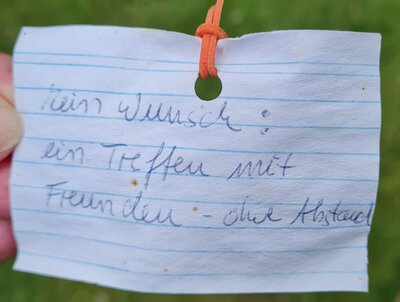 Mein Wunsch:
ein Treffen mit
Freunden - ohne Abstand